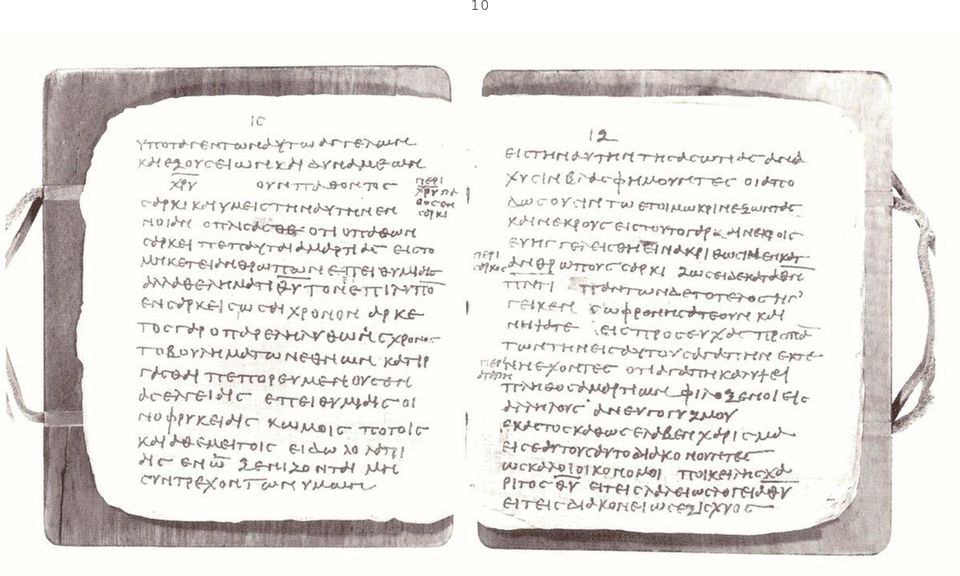 10
ιϛ
υποταγεντωναυτωαγγελων
καιεξουσειωνκαιδυναμεων
χρυ ουνπαθοντος
περι
χρυ πα
θοςεν
σαρκι
σαρκικαιυμειςτηναυτηνεν
νοιαν οπλισασθε οτι οπαθων
σαρκει πεπαυταιαμαρτιας ειςτο
μηκετειανθρωπων επειθυμιαις
αλλαθεληματι θυ τονεπιλυπο
ενσαρκει χρονον αρκε
τοςγαροπαρεληλυθωςχρονος
τοβουληματωνεθνων κατιρ
γασθαι πεπορευμενουςεν
ασελγειαις επειθυμιαις οι
νοφρυκειαις κωμοις ποτοις
καιαθεμειτοις ειδωλολατρι
αις ενω ξενιζονται μη
συντρεχοντωνυμων
ιζ
ειςτηναυτηντηςασωτιαςανα
χυσιν βλασφημουντες οιαπο
δωσουσιντωετοιμωκρινεζωντας
καινεκρους ειςτουτογαρκαινεκροις
ευηγγελεισθηεινακριθωσινμενκατ
περι
σαρκος
ανθρωπουςσαρκι ζωσειδεκαταθν
πνι παντωνδετοτελοςηγ
γεικεν σωφρονησατεουν και
νηψατε ειςπροσευχας προπα
τωντηνειςαυτουςαγαπηνεκτε
περι
αγαπης
νηεχοντες οτιαγαπηκαλυψει
πληθοςαμαρτιων φιλοξενοιεις
αλληλους ανευγογυζμου
εκαστοςκαθωςελαβενχαρισμα
ειςεαυτουςαυτοδιακονουντες
ωςκαλοιοικονομοι ποικειληςχα
ριτοςθυ ειτειςλαλειωςλογειαθυ
ειτειςδιακονειωςεξισχυος